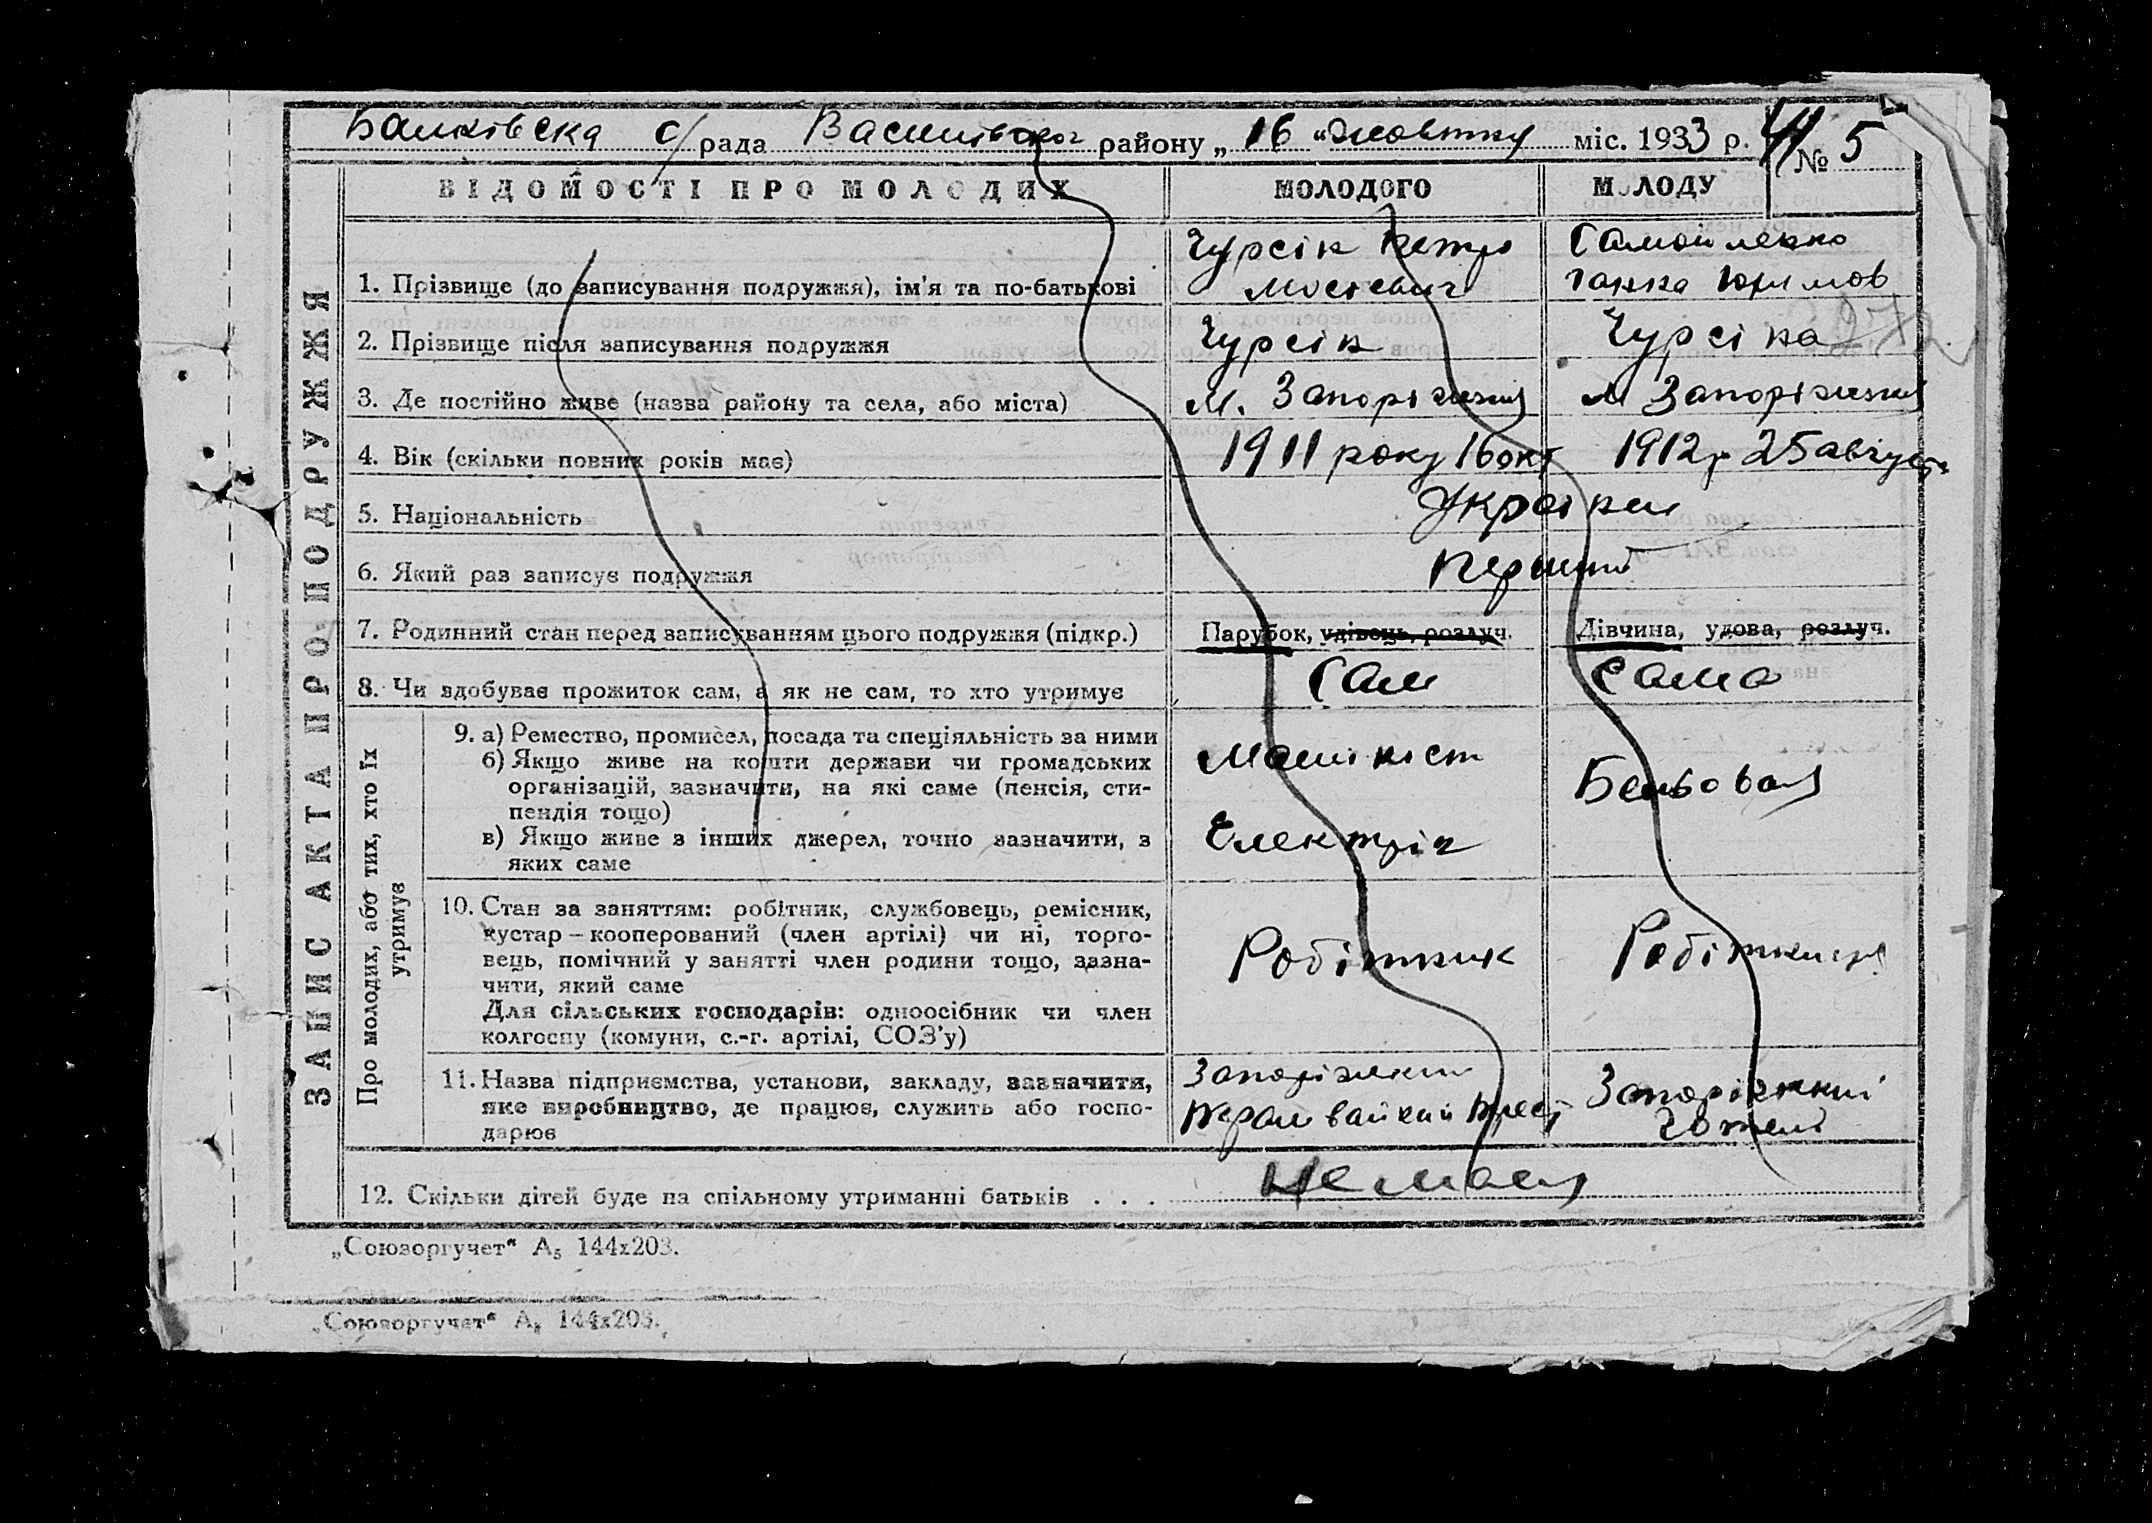 Балківська с/рада Василівського району „ 16 " жовтня міс. 1933 р. № 5
ЗАПИС АКТА ПРО ПОДРУЖЖЯ
ВІДОМОСТІ ПРО МОЛОДИХ МОЛОДОГО МОЛОДУ
1. Прізвище (до записування подружжя), ім'я та по-батькові
Чурсін Петро
Мосієвич
Самойленко
Ганна Юхимов
2. Прізвище після записування подружжя Чурсін Чурсіна
3. Де постійно живе (назва району та села, або міста) М. Запоріжжя М Запоріжжя
4. Вік (скільки повних років має) 1911 року 16 окт 1912 р 25 августа
5. Національність Українці
6. Який раз записує подружжя Перший
7. Родинний стан перед записуванням цього подружжя (підкр.) Парубок, удівець, розлуч. Дівчина, удова, розлуч.
8. Чи здобуває прожиток сам, а як не сам, то хто утримує Сам Сама
Про молодих, або тих, хто їх
утримує
9. а) Ремество, промисел, посада та спеціяльність за ними
б) Якщо живе на кошти держави чи громадських
організацій, зазначити, на які саме (пенсія, сти-
пендія тощо)
в) Якщо живе з інших джерел, точно зазначити, з
яких саме
Машиніст
Електрік
10. Стан за заняттям: робітник, службовець, ремісник,
кустар – кооперований (член артілі) чи ні, торго-
вець, помічний у занятті член родини тощо, зазна-
чити, який саме
Для сільських господарів: одноосібник чи член
колгоспу (комуни, с.-г. артілі, СОЗ'у)
Робітник Робітниця
11. Назва підприємства, установи, закладу, зазначити,
яке виробництво, де працює, служить або госпо-
дарює
Запоріжжя
трест
Запоріжжкий
Готель
12. Скільки дітей буде на спільному утриманні батьків . . . Не мають
„Союзоргучет" А₅ 144х203.
„Союзоргучет" А₅ 144х203.